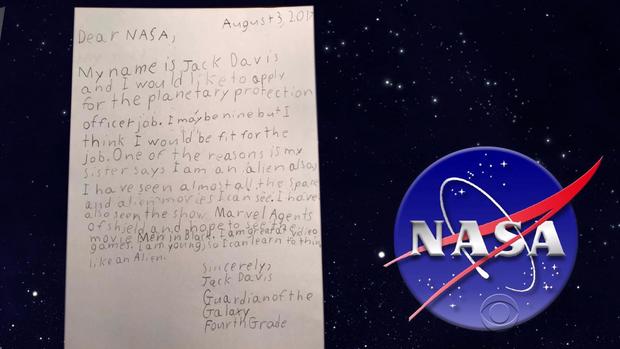 August 3, 2017
Dear NASA,
My name is Jack Davis
and I would like to apply
for the planetary protection
officer job. I may be nine but I
think I would be fit for the
job. One of the reasons is my
sister says I am an alien also
I have seen almost all the space
and alien movies I can see. I have
also seen the show Marvel Agents
of Shield and hope to see the
movie Men in Black. I am great at video
games. I am young, so I can learn to think
like an Alien.
Sincerely,
Jack Davis
Guardian of the
Galaxy
Fourth Grade
NASA